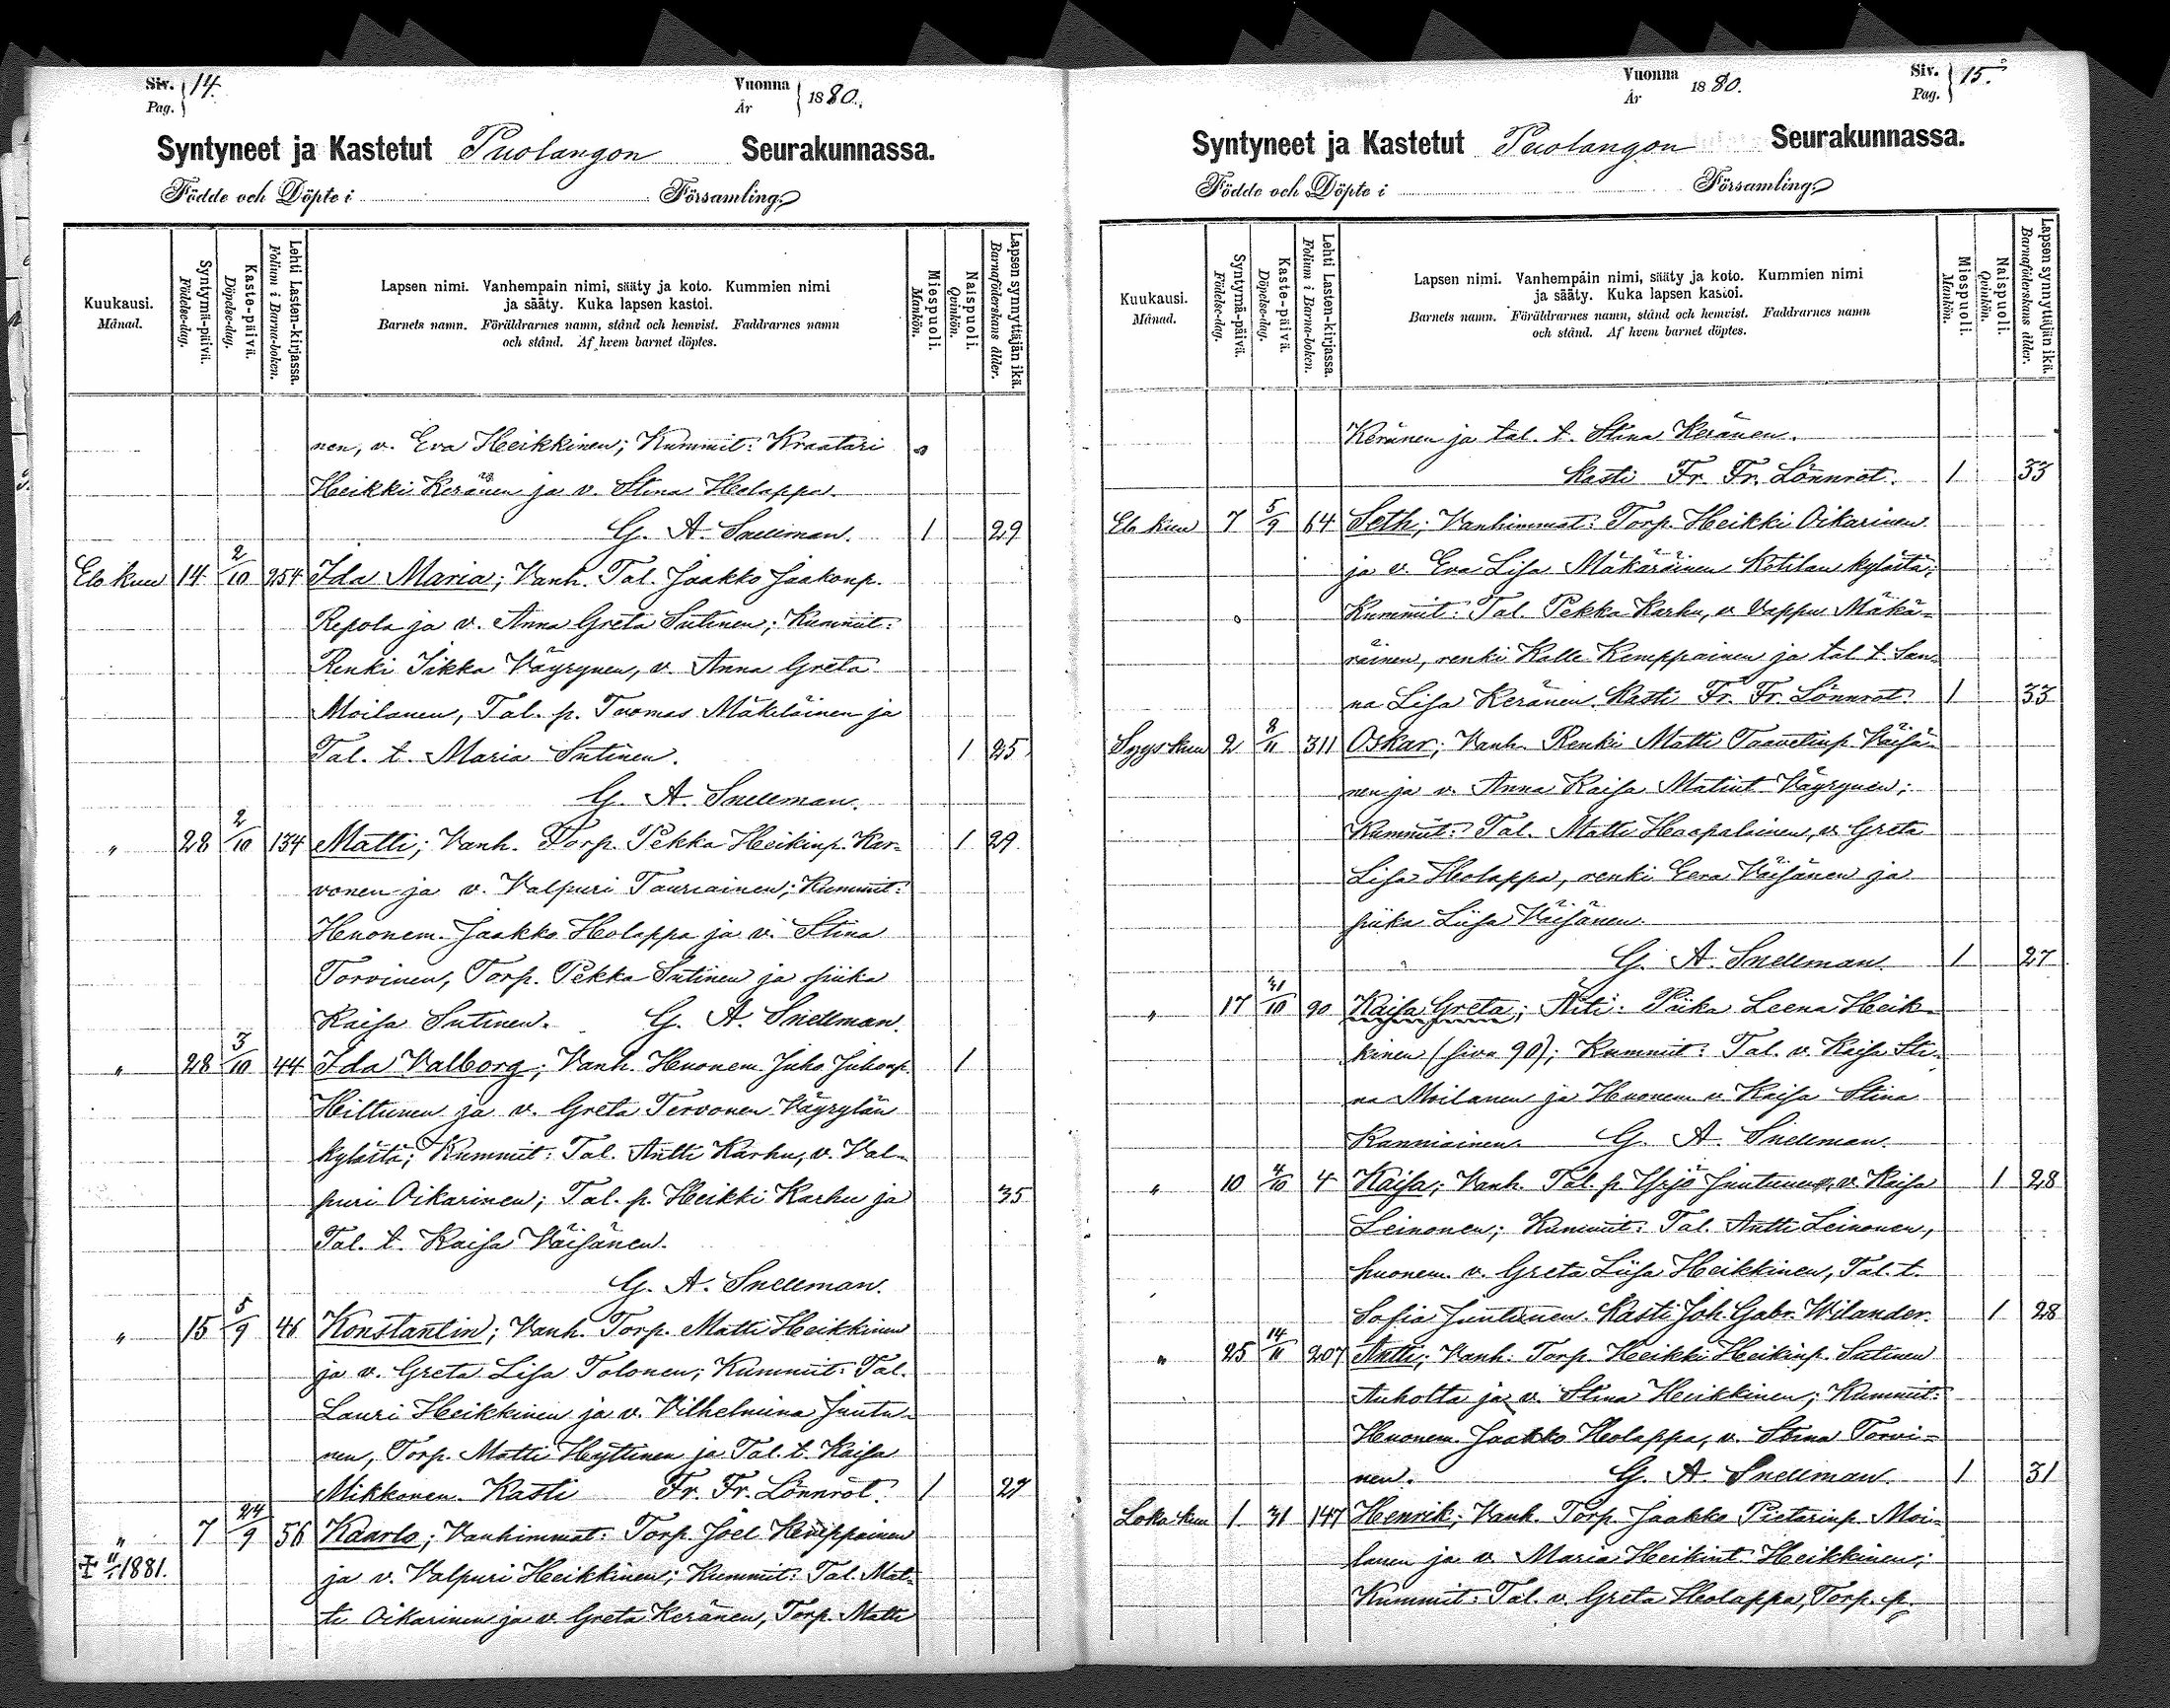 Siv. Pag. 14.
Vuonna År 1880.
Syntyneet ja Kastetut Puolangon Seurakunnassa.
Födde och Döpte i Församling.
Kuukausi. Månad.
Syntymä-päivä. Födelse-dag.
Kaste-päivä. Döpelse-dag.
Lehti Lasten-kirjassa. Folium i Barna-boken.
Lapsen nimi. Vanhempain nimi, sääty ja koto. Kummien nimi
ja sääty. Kuka lapsen kastoi.
Barnets namn. Föräldrarnes namn, stånd och hemvist. Faddrarnes namn
och stånd. Af hvem barnet döptes.
Miespuoli. Mankön.
Naispuoli. Qvinkön.
Lapsen synnyttäjän ikä. Barnaföderskans ålder.
nen, v. Eva Heikkinen; Kummit: Kraatari
Heikki Keränen ja v. Stina Holappa.
G. A. Snellman. 1 29
Elo kuu 14 2/10 254 Ida Maria; Vanh. Tal. Jaakko Jaakonp.
Repola ja v. Anna Greta Sutinen; Kummit:
Renki Iikka Väyrynen, v. Anna Greta
Moilanen, Tal. p. Tuomas Mäkeläinen ja
Tal. t. Maria Sutinen. 1 25
G. A. Snellman.
" 28 2/10 134 Matti; Vanh. Torp. Pekka Heikinp. Kar= 1 29
vonen ja v. Valpuri Tauriainen; Kummit:
Huonem. Jaakko Holappa ja v. Stina
Torvinen, Torp. Pekka Sutinen ja piika
Kaisa Sutinen. G. A. Snellman.
" 28 3/10 44 Ida Valborg; Vanh. Huonem. Juho Juhonp. 1
Hiltunen ja v. Greta Tervonen Väyrylän
kylästä; Kummit: Tal. Antti Karhu, v. Val=
puri Oikarinen; Tal. p. Heikki Karhu ja 35
Tal. t. Kaisa Väisänen.
G. A. Snellman.
" 15 5/9 46 Konstantin; Vanh. Torp. Matti Heikkinen
ja v. Greta Lisa Tolonen; Kummit: Tal.
Lauri Heikkinen ja v. Vilhelmina Juntu=
nen, Torp. Matti Heyttinen ja Tal. t. Kaisa
Mikkonen. Kasti Fr. Fr. Lönnrot. 1 27
" 7 24/9 56 Kaarlo; Vanhimmat: Torp. Joel Kemppainen
1881. ja v. Valpuri Heikkinen; Kummit: Tal. Mat=
ti Oikarinen ja v. Greta Keränen, Torp. Matti
Vuonna År 1880.
Siv. Pag. 15.
Syntyneet ja Kastetut Puolangon Seurakunnassa.
Födde och Döpte i Församling.
Kuukausi. Månad.
Syntymä-päivä. Födelse-dag.
Kaste-päivä. Döpelse-dag.
Lehti Lasten-kirjassa. Folium i Barna-boken.
Lapsen nimi. Vanhempain nimi, sääty ja koto. Kummien nimi
ja sääty. Kuka lapsen kastoi.
Barnets namn. Föräldrarnes namn, stånd och hemvist. Faddrarnes namn
och stånd. Af hvem barnet döptes.
Miespuoli. Mankön.
Naispuoli. Qvinkön.
Lapsen synnyttäjän ikä. Barnaföderskans ålder.
Keränen ja tal. t. Stina Keränen.
Kasti Fr. Fr. Lönnrot. 1 33
Elo kuu 7 5/9 64 Seth; Vanhimmat: Torp. Heikki Oikarinen
ja v. Eva Lisa Mäkäräinen Kotilan kylästä;
Kummit: Tal. Pekka Karhu, v. Vappu Mäkä=
räinen, renki Kalle Kemppainen ja tal. t. San=
na Lisa Keränen. Kasti Fr. Fr. Lönnrot. 1 33
Syys kuu 2 8/11 311 Oskar; Vanh. Renki Matti Taavetinp. Väisä=
nen ja v. Anna Kaisa Matint. Väyrynen;
Kummit: Tal. Matti Haapalainen, v. Greta
Lisa Holappa, renki Eera Väisänen ja
piika Liisa Väisänen.
G. A. Snellman. 1 27
" 17 31/10 90 Kaisa Greta; Äiti: Piika Leena Heik=
kinen (sivu 90); Kummit: Tal. v. Kaisa Sti=
na Moilanen ja Huonem. v. Kaisa Stina
Kanniainen. G. A. Snellman.
" 10 4/10 4 Kaisa; Vanh. Tal. p. Yrjö Juntunen, v. Kaisa 1 28
Leinonen; Kummit: Tal. Antti Leinonen,
huonem. v. Greta Liisa Heikkinen, Tal. t.
Sofia Juntunen. Kasti Joh. Gabr. Wilander. 1 28
" 25 14/11 207 Antti; Vanh. Torp. Heikki Heikinp. Sutinen
Auholta ja v. Stina Heikkinen; Kummit:
Huonem. Jaakko Holappa, v. Stina Torvi=
nen. G. A. Snellman. 1 31
Loka kuu 1 31 147 Henrik; Vanh. Torp. Jaakko Pietarinp. Moi=
lanen ja v. Maria Heikint. Heikkinen;
Kummit: Tal. v. Greta Holappa, Torp. p.